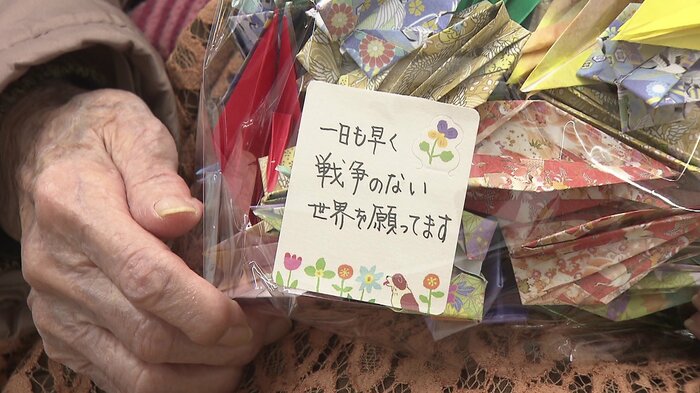 一日も早く
戦争のない
世界を願ってます